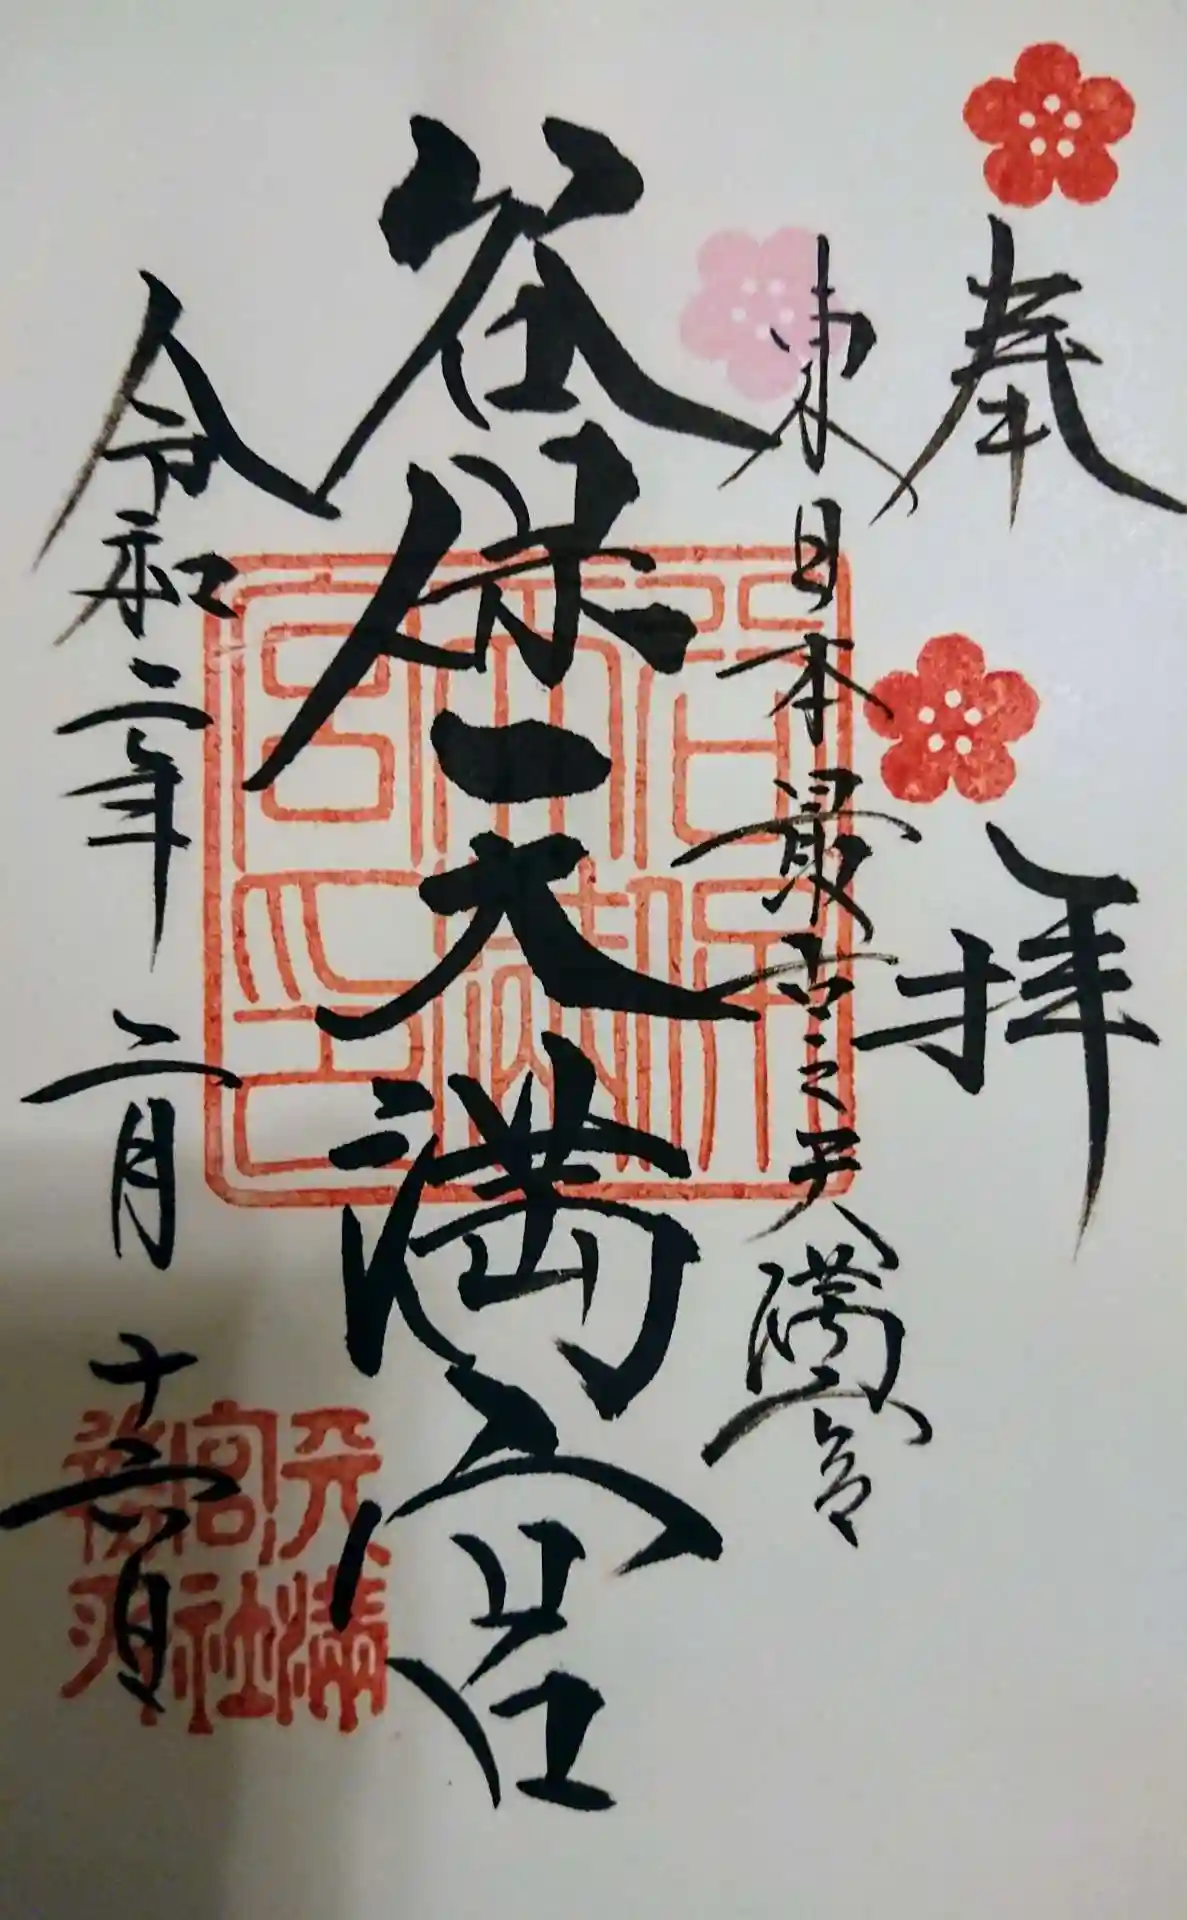 奉拝
東日本最古之天満宮
谷保天満宮
令和二年二月十六日
谷保天満宮印
天満宮社務所